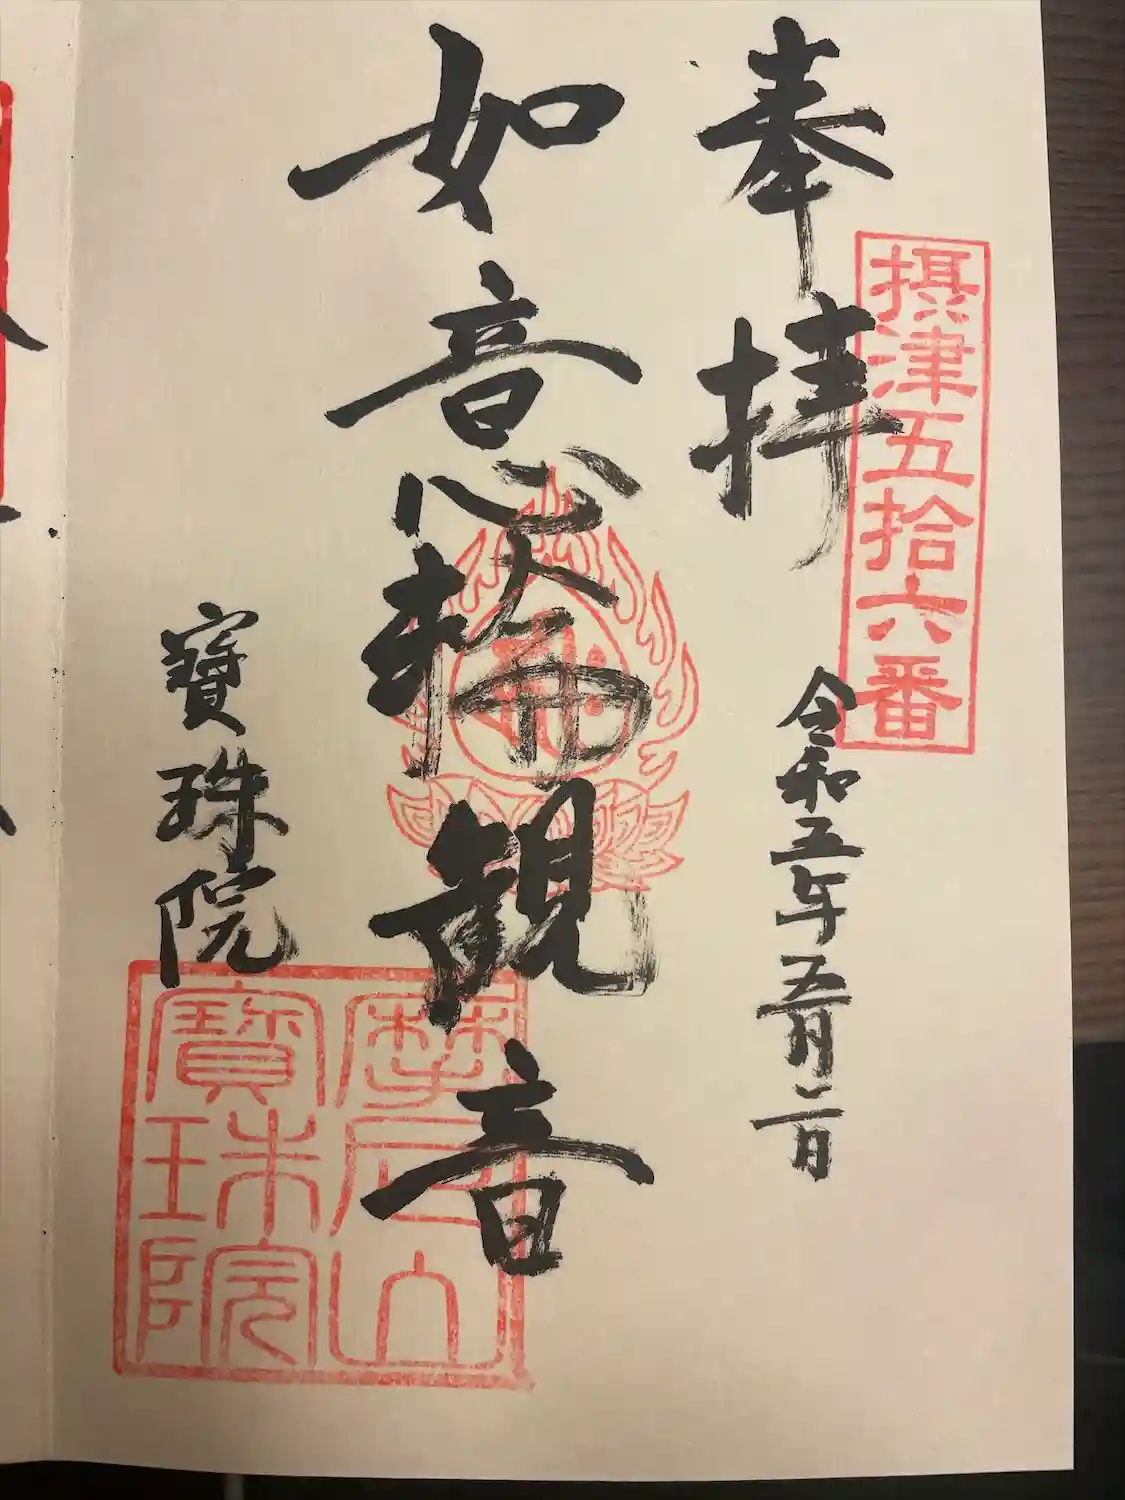 奉拝
摂津五拾六番
令和五年五月二日
如意輪観音
寶珠院
摩尼山
寶珠院